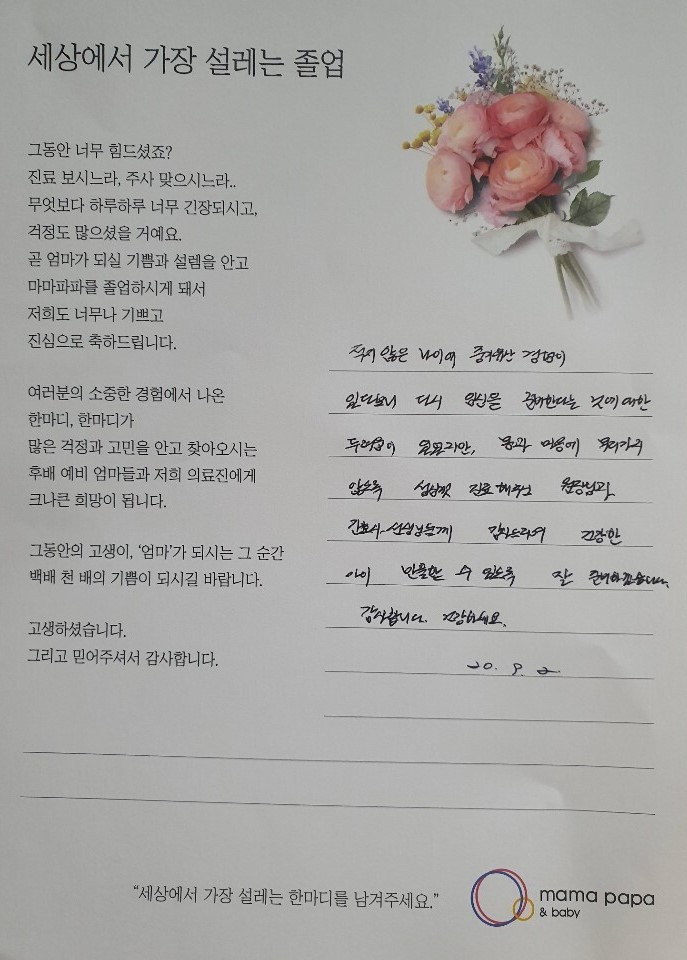 세상에서 가장 설레는 졸업
그동안 너무 힘드셨죠?
진료 보시느라, 주사 맞으시느라..
무엇보다 하루하루 너무 긴장되시고,
걱정도 많으셨을 거예요.
곧 엄마가 되실 기쁨과 설렘을 안고
마마파파를 졸업하시게 돼서
저희도 너무나 기쁘고
진심으로 축하드립니다.
여러분의 소중한 경험에서 나온
한마디, 한마디가
많은 걱정과 고민을 안고 찾아오시는
후배 예비 엄마들과 저희 의료진에게
크나큰 희망이 됩니다.
그동안의 고생이, ‘엄마’가 되시는 그 순간
백배 천 배의 기쁨이 되시길 바랍니다.
고생하셨습니다.
그리고 믿어주셔서 감사합니다.
적지 않은 나이에 경험이
있다보니 다시 임신을 준비한다는 것에 대한
두려움이 있었지만, 몸과 마음에 무리가지
않도록 진료해주신 원장님과,
간호사 선생님들께 감사드리며 건강한
아이 만출할 수 있도록 잘 준비하겠습니다.
감사합니다. 건강하세요.
20. 9. 2
“세상에서 가장 설레는 한마디를 남겨주세요.”
mama papa
& baby